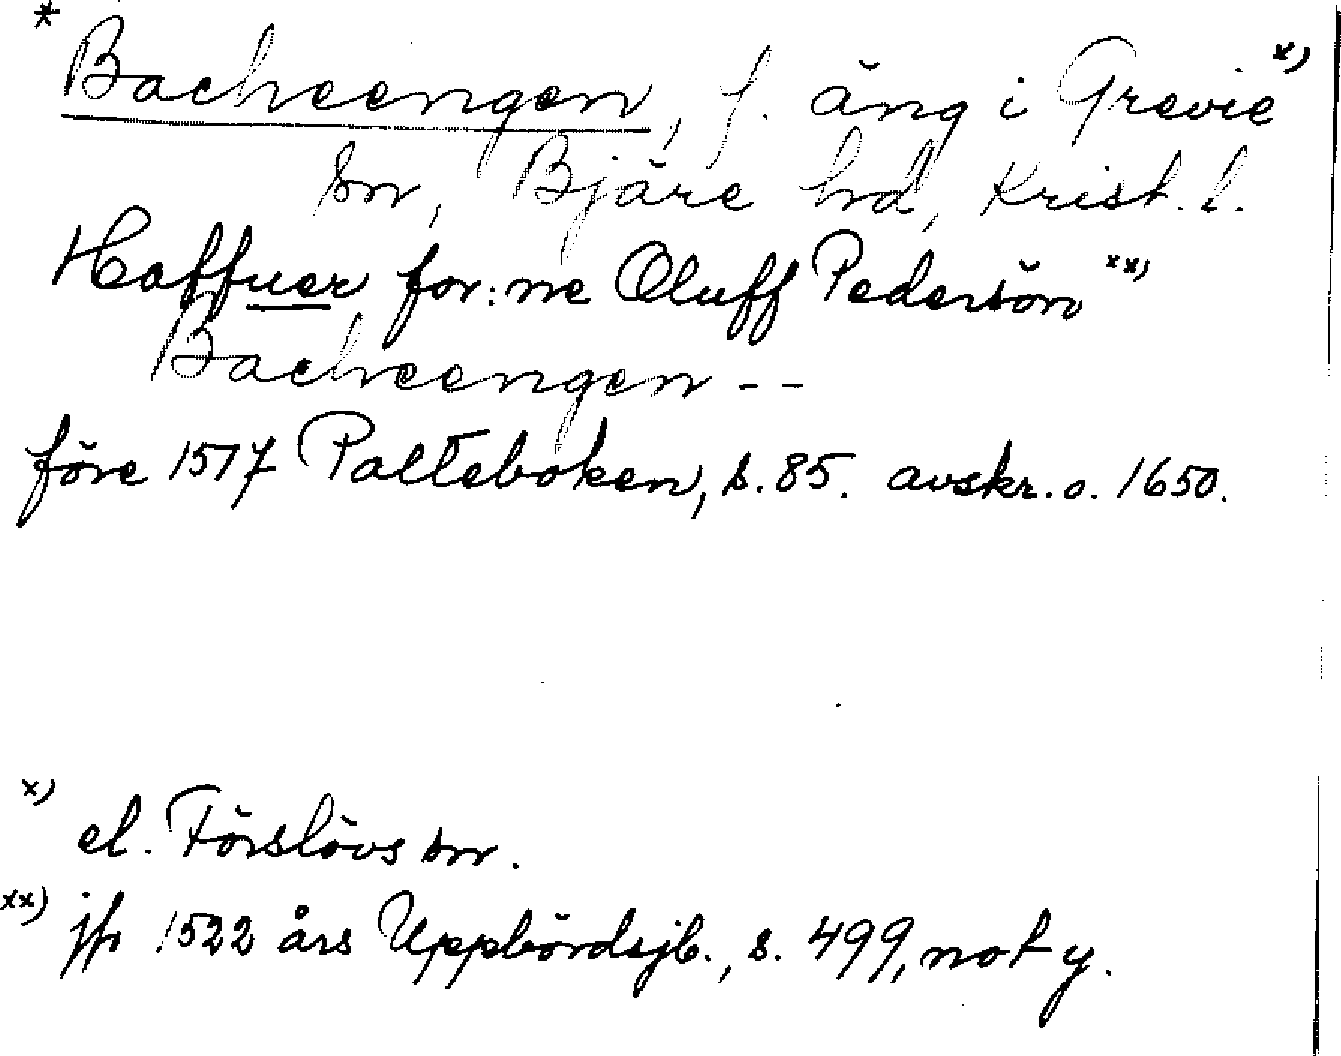 * Bacheengen, f. äng i Grevie x)
sn, Bjäre hd, Krist. l.
Haffuer for:ne Oluff Pedersön xx)
Bacheengen --
före 1517 Palteboken, s. 85. avskr. o. 1650.
x) el. Förslövs sn.
xx) jfr 1522 års Uppbördsjb., s. 499, not y.